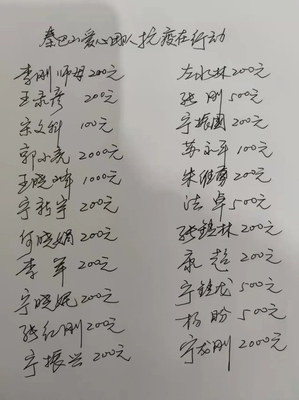 秦巴小爱心团队抗疫在行动
李刚师母200元 左永林200元
王录彦 200元 张刚 500元
宋文科 100元 宁振国 200元
郭小亮 2000元 苏永平 100元
王晓峰 1000元 朱维勇 200元
宁新宇 200元 法卓 500元
何晓娟 200元 张铠林 200元
李军 200元 康超 200元
宁晓妮 200元 宁铠龙 500元
张红刚 200元 杨盼 500元
宁振兴 200元 宁龙刚 2000元